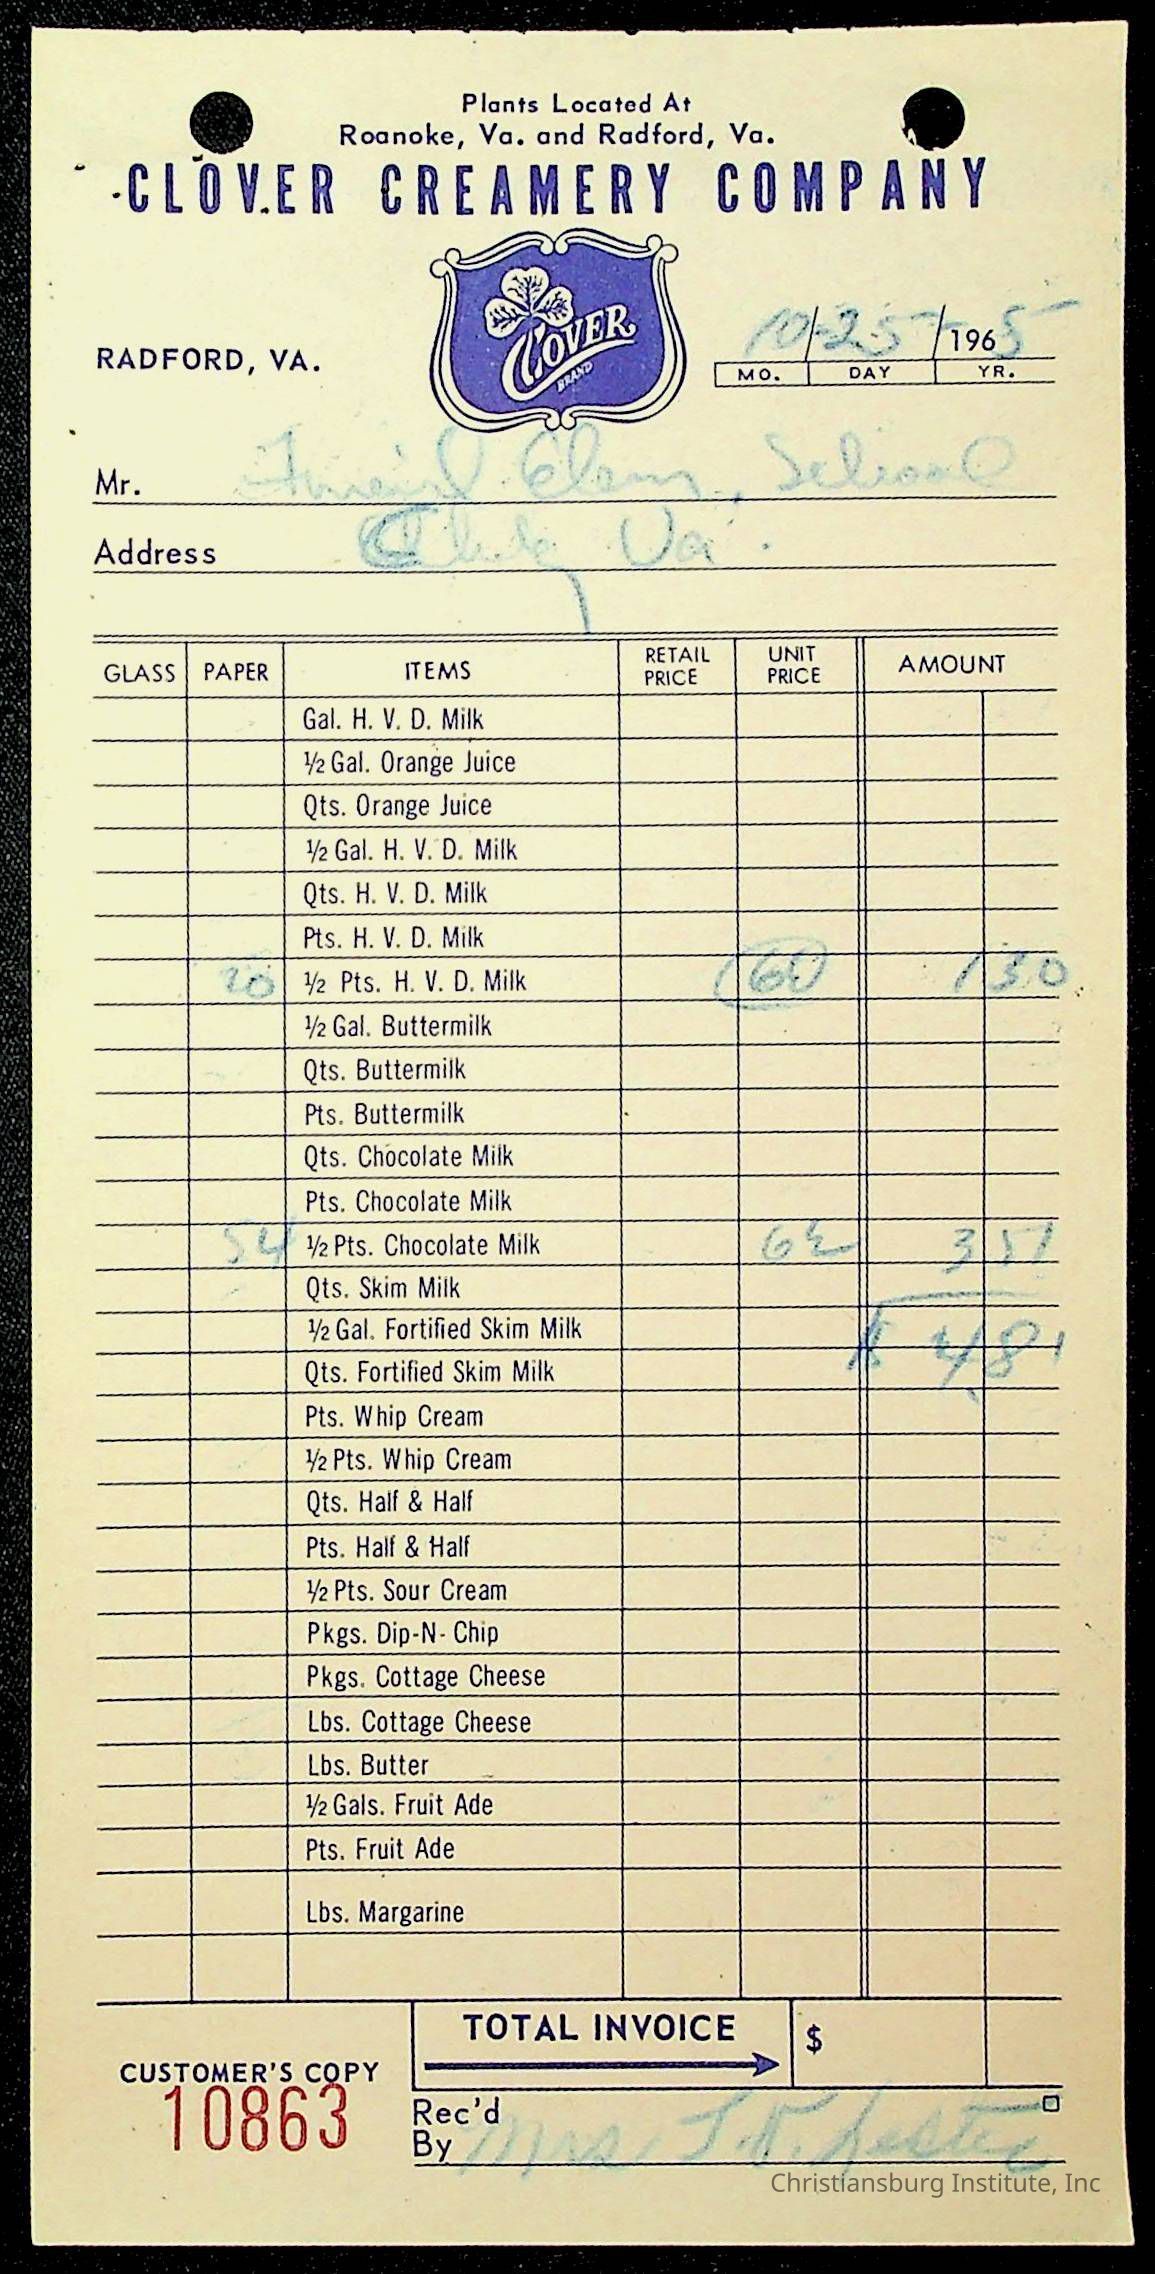 Plants Located At
Roanoke, Va. and Radford, Va.
CLOVER CREAMERY COMPANY
CLOVER
BRAND
RADFORD, VA.
10/25/1965
MO. DAY YR.
Mr. Elem. School
Address Va.
GLASS PAPER ITEMS RETAIL PRICE UNIT PRICE AMOUNT
Gal. H. V. D. Milk
½ Gal. Orange Juice
Qts. Orange Juice
½ Gal. H. V. D. Milk
Qts. H. V. D. Milk
Pts. H. V. D. Milk
20 ½ Pts. H. V. D. Milk 1 30
½ Gal. Buttermilk
Qts. Buttermilk
Pts. Buttermilk
Qts. Chocolate Milk
Pts. Chocolate Milk
54 ½ Pts. Chocolate Milk 6½ 3 51
Qts. Skim Milk
½ Gal. Fortified Skim Milk
$ 4 81
Qts. Fortified Skim Milk
Pts. Whip Cream
½ Pts. Whip Cream
Qts. Half & Half
Pts. Half & Half
½ Pts. Sour Cream
Pkgs. Dip-N-Chip
Pkgs. Cottage Cheese
Lbs. Cottage Cheese
Lbs. Butter
½ Gals. Fruit Ade
Pts. Fruit Ade
Lbs. Margarine
TOTAL INVOICE $
CUSTOMER'S COPY
10863
Rec'd
By Mrs. Lester
Christiansburg Institute, Inc